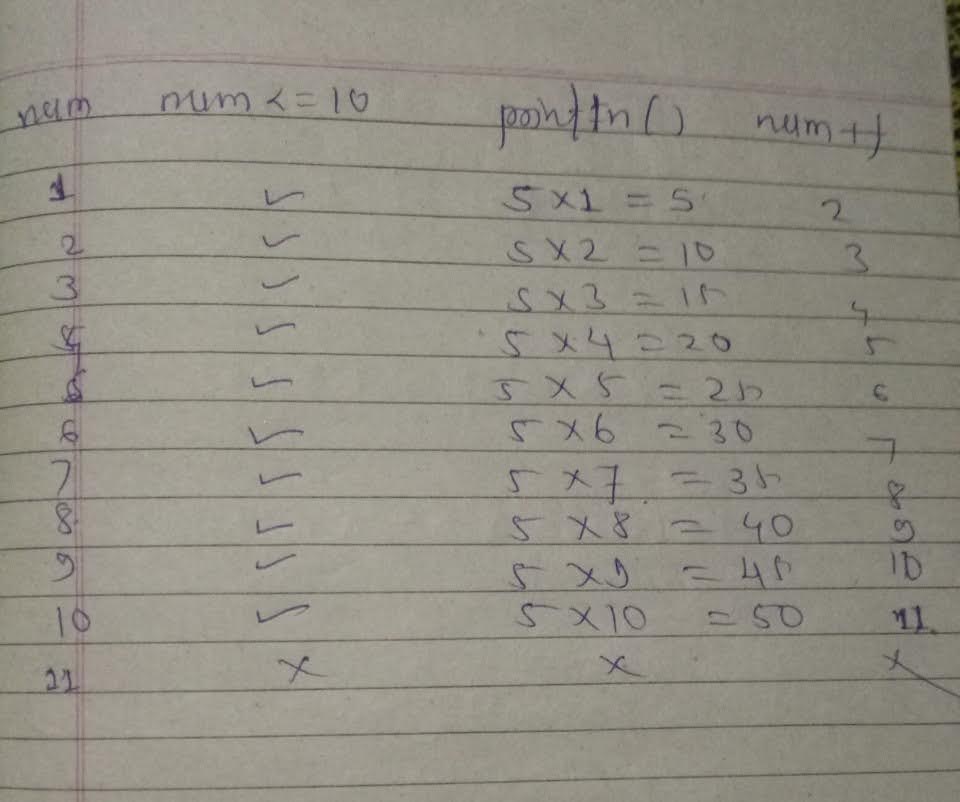 num num <= 10 println() num++
1 ✓ 5 × 1 = 5 2
2 ✓ 5 × 2 = 10 3
3 ✓ 5 × 3 = 15 4
4 ✓ 5 × 4 = 20 5
5 ✓ 5 × 5 = 25 6
6 ✓ 5 × 6 = 30 7
7 ✓ 5 × 7 = 35 8
8 ✓ 5 × 8 = 40 9
9 ✓ 5 × 9 = 45 10
10 ✓ 5 × 10 = 50 11
11 × × ×